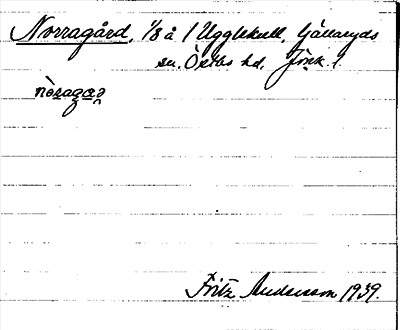 Norragård, 1/8 å 1 Ugglekull, Gällaryds
sn. Östbo hd, Jönk. l.
nòragaɹ̣
Fritz Andersson 1939.